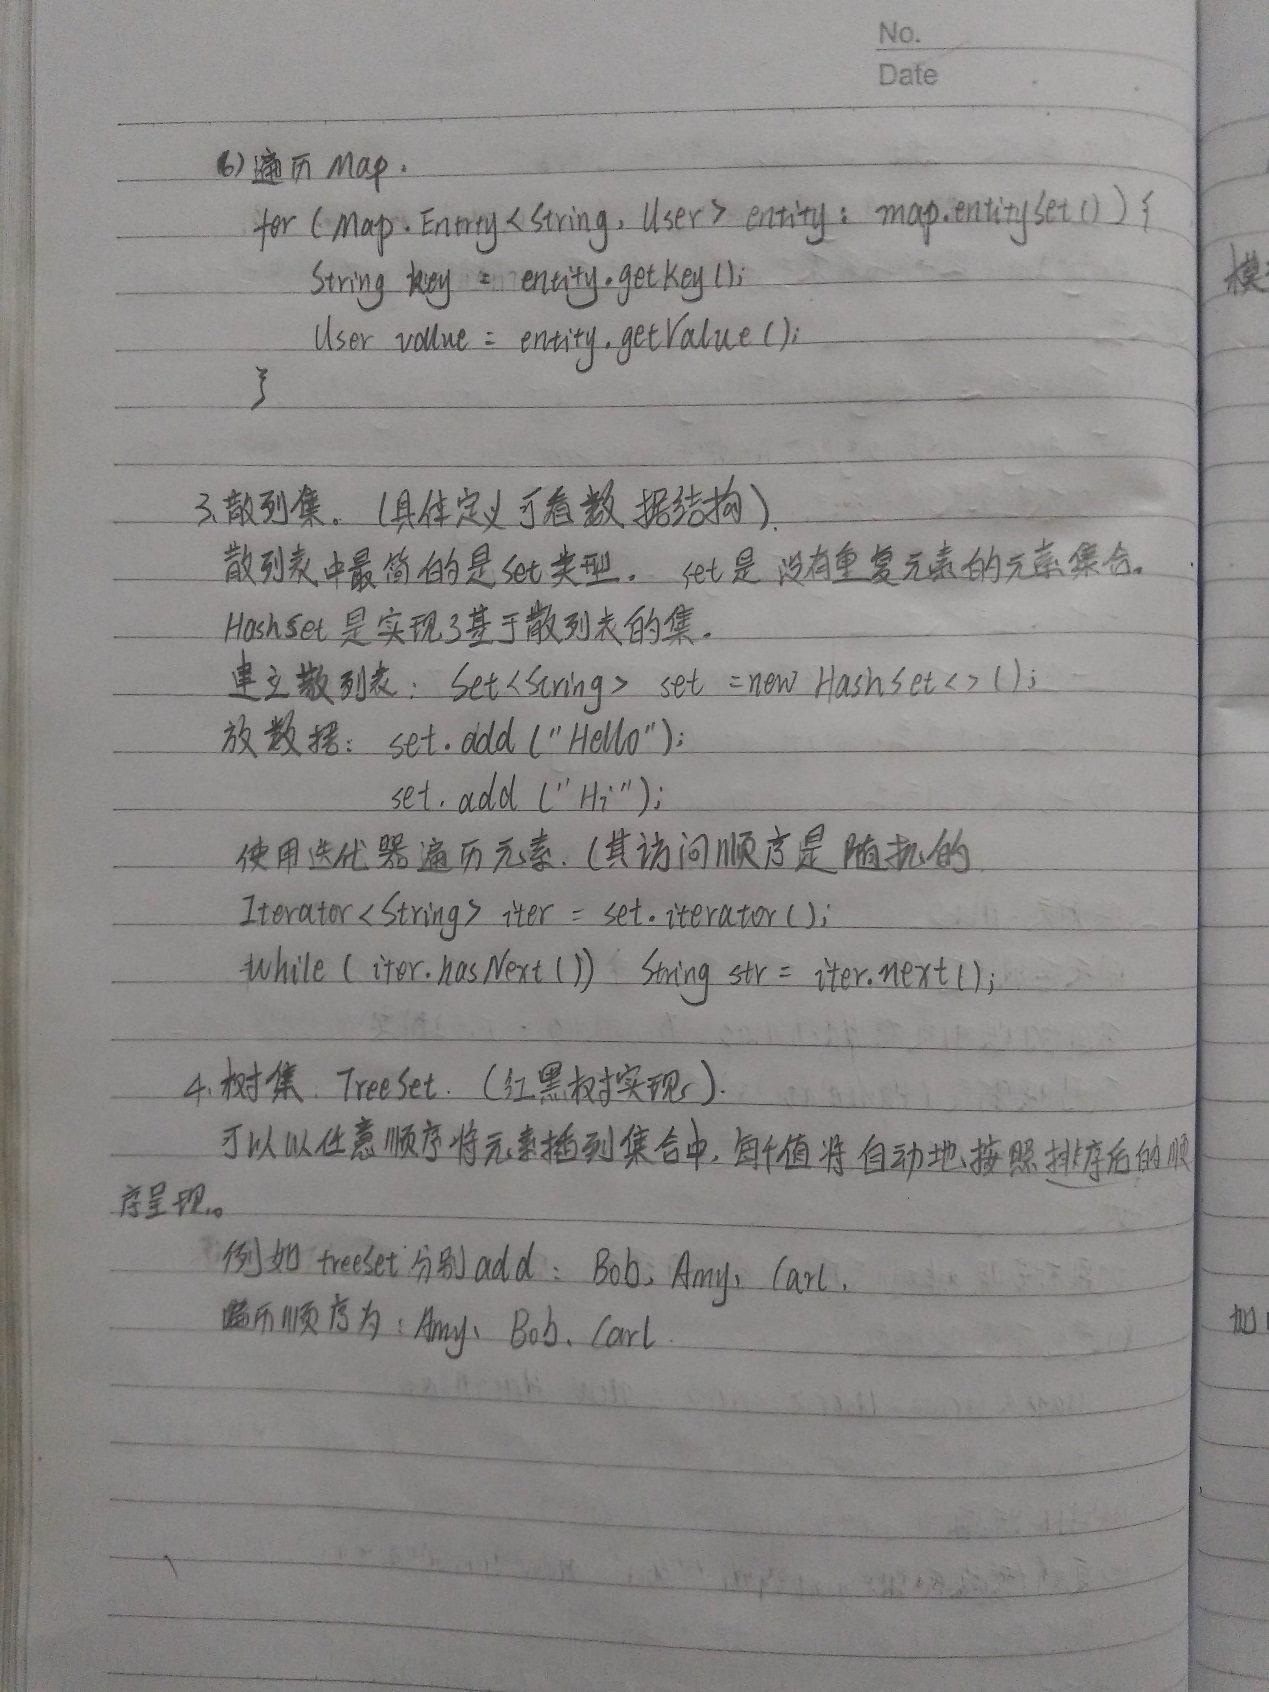 No.
Date
6) 遍历 Map.
for (Map.Entry<String, User> entity : map.entitySet()) {
String key = entity.getKey();
User value = entity.getValue();
}
3、散列集. (具体定义可看数据结构).
散列表中最简的是set类型. set是没有重复元素的元素集合.
HashSet是实现了基于散列表的集.
建立散列表: Set<String> set = new HashSet<>();
放数据: set.add("Hello");
set.add("Hi");
使用迭代器遍历元素. (其访问顺序是随机的
Iterator<String> iter = set.iterator();
While (iter.hasNext()) String str = iter.next();
4、树集 TreeSet. (红黑树实现).
可以以任意顺序将元素插到集合中, 每个值将自动地按照排序后的顺
序呈现。
例如 treeSet分别add: Bob、Amy、Carl.
遍历顺序为: Amy、Bob、Carl.
模
加